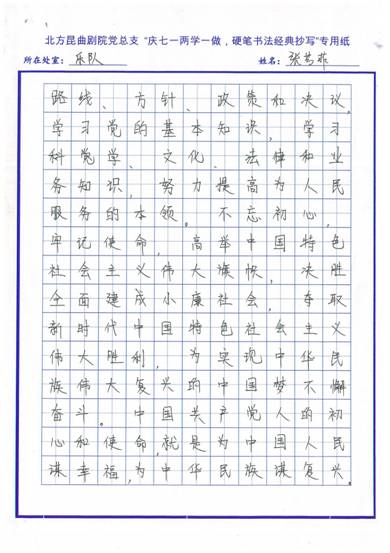 北方昆曲剧院党总支“庆七一两学一做，硬笔书法经典抄写”专用纸
所在处室：乐队 姓名：张艺菲
路线、方针、政策和决议，
学习党的基本知识，学习
科党学、文化、法律和业
务知识，努力提高为人民
服务的本领。不忘初心，
牢记使命，高举中国特色
社会主义伟大旗帜，决胜
全面建成小康社会，夺取
新时代中国特色社会主义
伟大胜利，为实现中华民
族伟大复兴的中国梦不懈
奋斗。中国共产党人的初
心和使命，就是为中国人民
谋幸福，为中华民族谋复兴。